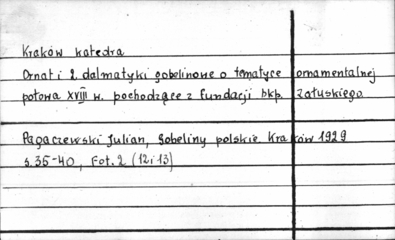 Kraków katedra
Ornat i 2 dalmatyki gobelinowe o tematyce ornamentalnej
połowa XVIII w. pochodzące z fundacji bkp. Załuskiego.
Pagaczewski Julian, Gobeliny polskie. Kraków 1929
s. 35-40, Fot. 2 (12 i 13)